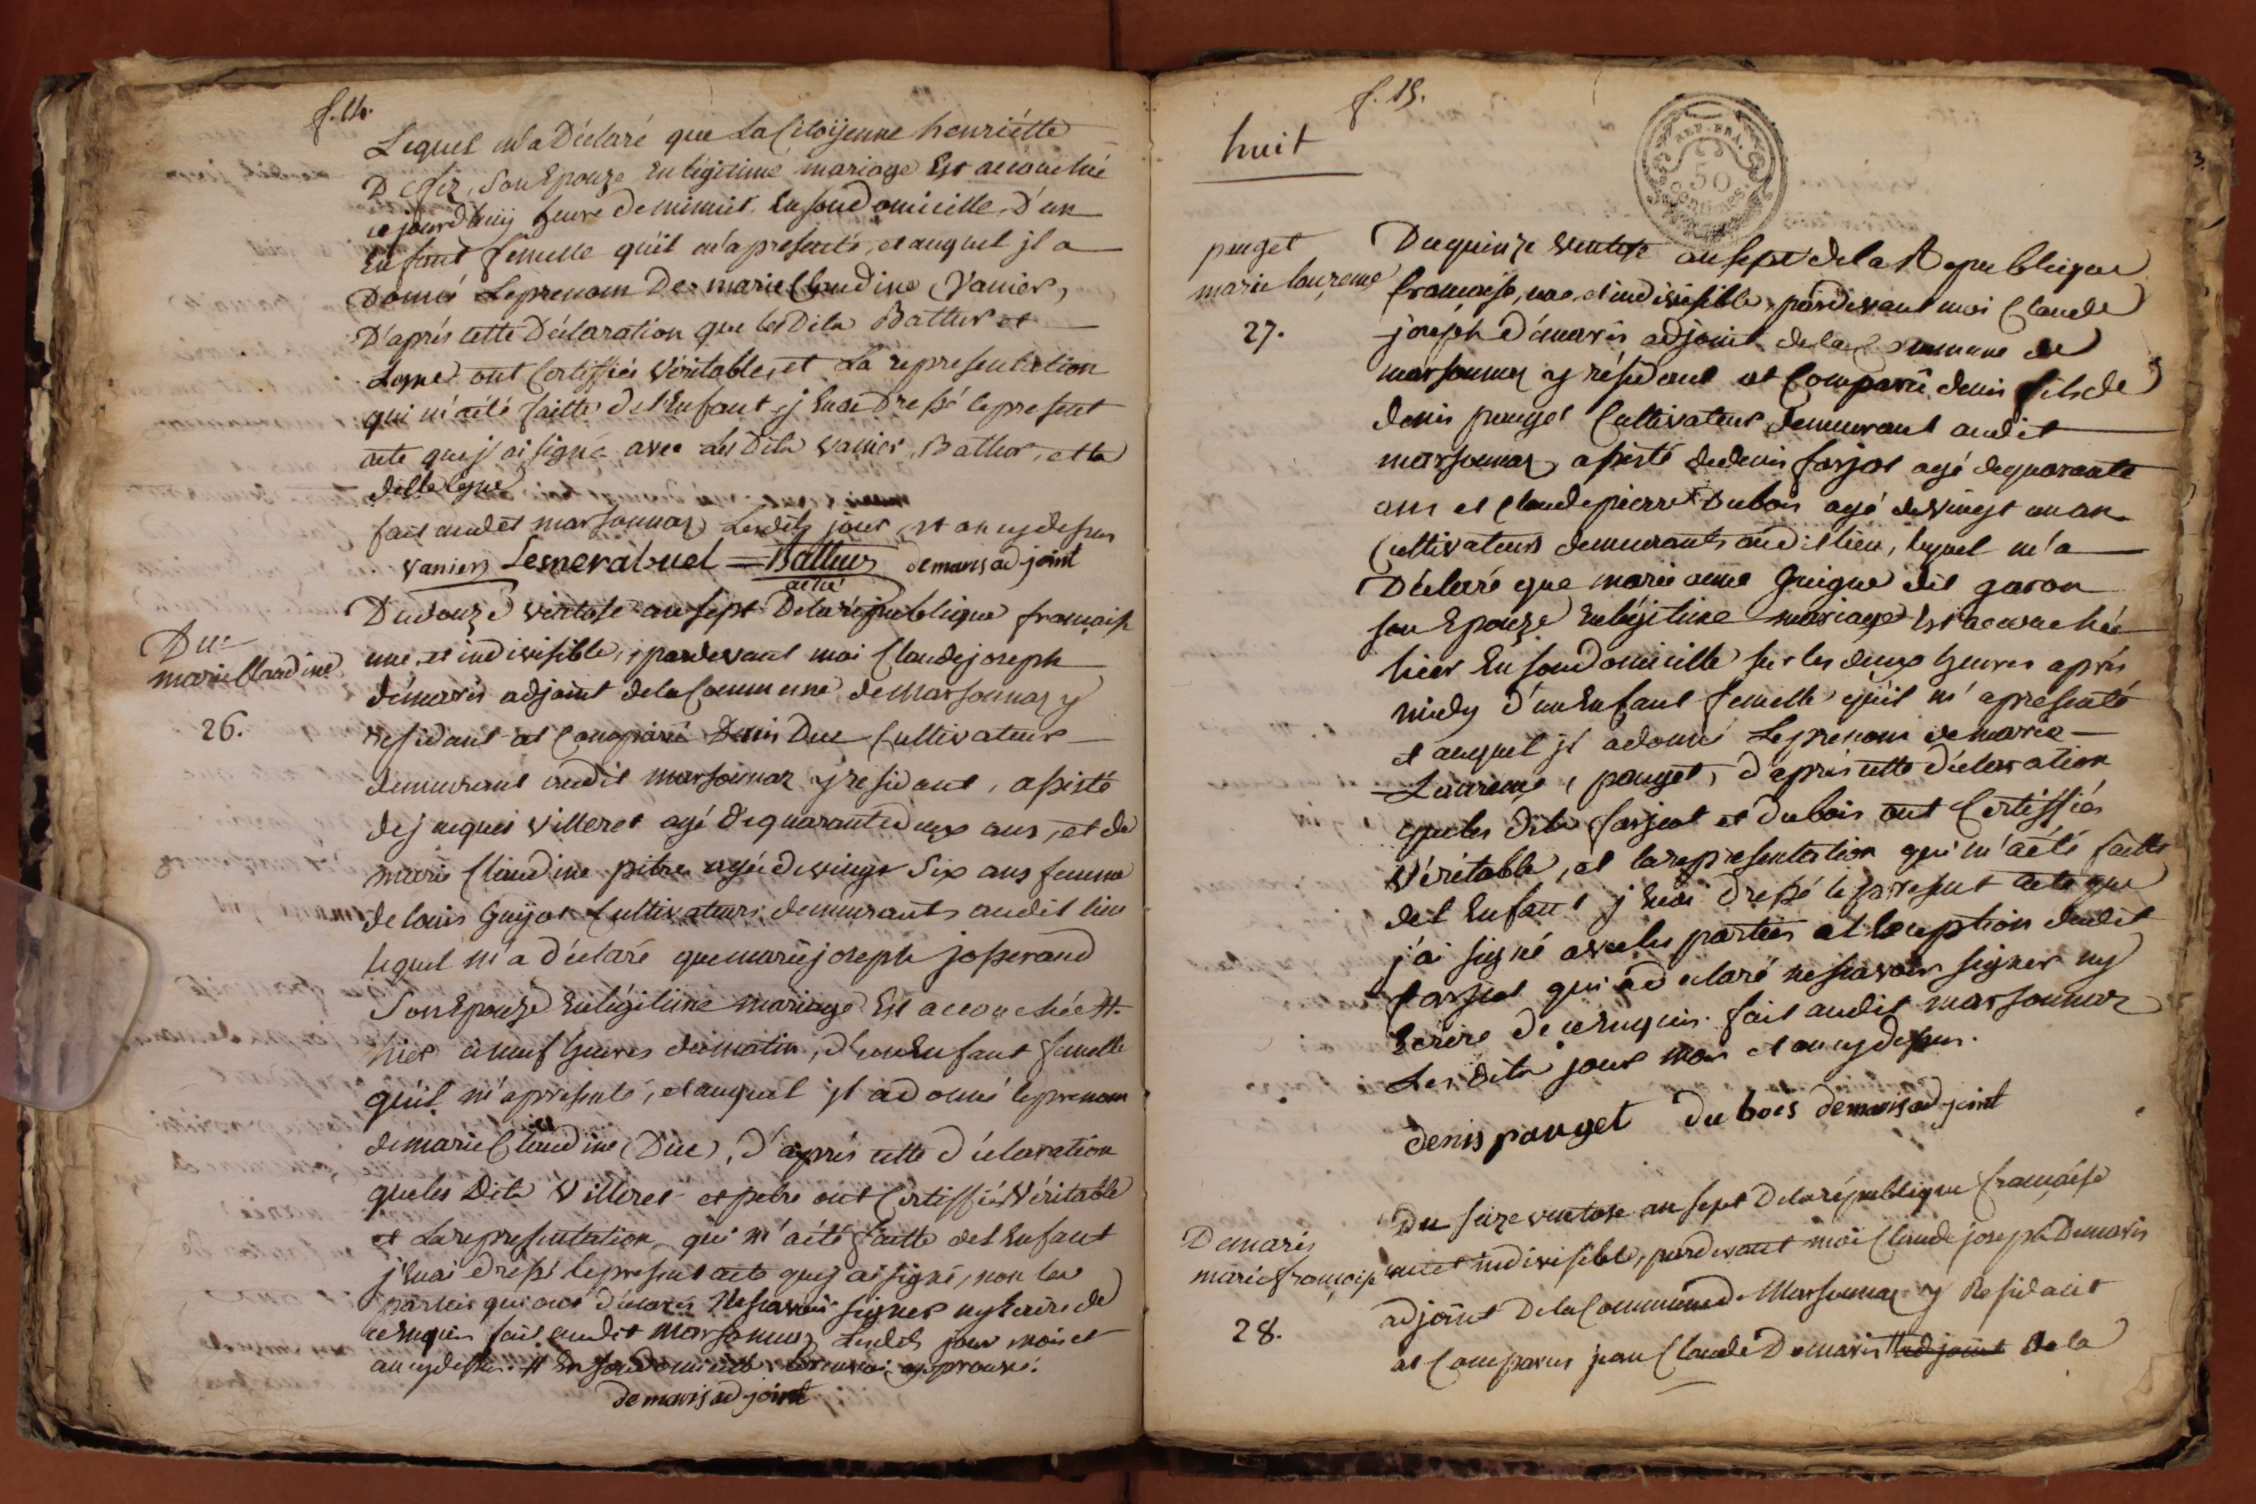 f. 14.
Lequel m'a Déclaré que La Citoÿenne henriétte
son Epouze En légitimé mariage Est accouchéé
ce jourdhuÿ heure de minuit En son domicille, D'un
Enfant femelle qu'il m'a presenté, et auquel jl a
Donné Le prenom De marie Claudine Vanier,
D'aprés cette Déclaration que les Dits Battur et
Lesne ont Certiffiés Véritable, et La representation
qui m'a été faitte de l'Enfant, j'En ai Dressé le present
acte que j'ai signé avec les Dits vanier, Battur, et la
ditte Lesne
fait audit marsonnaz Lesdits jour, et an cydessus
vaniers Lesnerabuel = Battur demaris ad-joint
Duc
marie Claudine
26.
Du douze ventose an sept De la république française
une, et indivisible, pardevant moi Claude joseph
démaris adjoint de la Commune de Marsonnaz y
residant at Comparû Denis Duc Cultivateur
demeurant audit marsonnaz y residant, assisté
de jacques Villeret agé de quarante deux ans, et de
marie Claudine pitre agée de vingt Six ans femme
de louis Guÿot Cultivateurs demeurants audit lieu
lequel m'a déclaré que marie joseph josserand
Son Epouze En légitime mariage Est accouchée #
hier à neuf heures du matin, d'un Enfant femelle
qu'il m'a presenté, et auquel jl a donné le prenom
de marie Claudine (Duc), d'aprés cette déclaration
que les Dits Villeret et pitre ont Certiffiés Véritable
et La representation qui m'a été faitte de l'Enfant
j'En ai dressé le present acte que j'ai signé, non les
parties qui ont déclarés Ne savoir signer ny Ecrire de
ce Enquis fait audit Marsonnaz Lesdits jour mois et
an cydessus. # En son Domicille Le renvoi approuvé.
demaris ad-joint
f. 15.
huit
REP. FRA.
50
CENTIMES
pouget
marie laurence
27.
Du quinze ventose an sept de la République
française, une, et indivisible, pardevant moi Claude
joséph démaris adjoint de la Commune de
marsonnaz y résidant at Comparû denis fils de
denis pouget Cultivateur demeurant audit
marsonnaz, assisté de denis farjot agé de quarante
ans et Claude pierre Dubois agé de vingt un an
Cultivateurs demeurants audit lieu, lequel m'a
Déclaré que marie anne Guigue dit garon
son Epouze En légitime mariage Est accouchée
hier En son domicille sur les deux heures aprés
midy d'un Enfant femelle qu'il m'a presenté
et auquel jl a donné Le prenom de marie
Laurence, pouget, d'aprés cette déclaration
que les dits farjeot et dubois ont Certiffiés
Véritable, et la representation qui m'a été faitte
de l'Enfant j'En ai dressé le present acte que
j'ai signé avec les parties at l'exception dudit
farjeot qui a déclaré ne savoir signer ny
Ecrire de ce Enquis. fait audit marsonnaz
Les dits jour mois et an cydessus.
denis pouget du bois demaris ad-joint
Demaris
marie françoise
28.
Du seize ventose an sept De la république française
une et indivisible, pardevant moi Claude joseph Demaris
adjoint De la Commune de Marsonnaz y Residant
at Comparus jean Claude Demaris adjoint De la